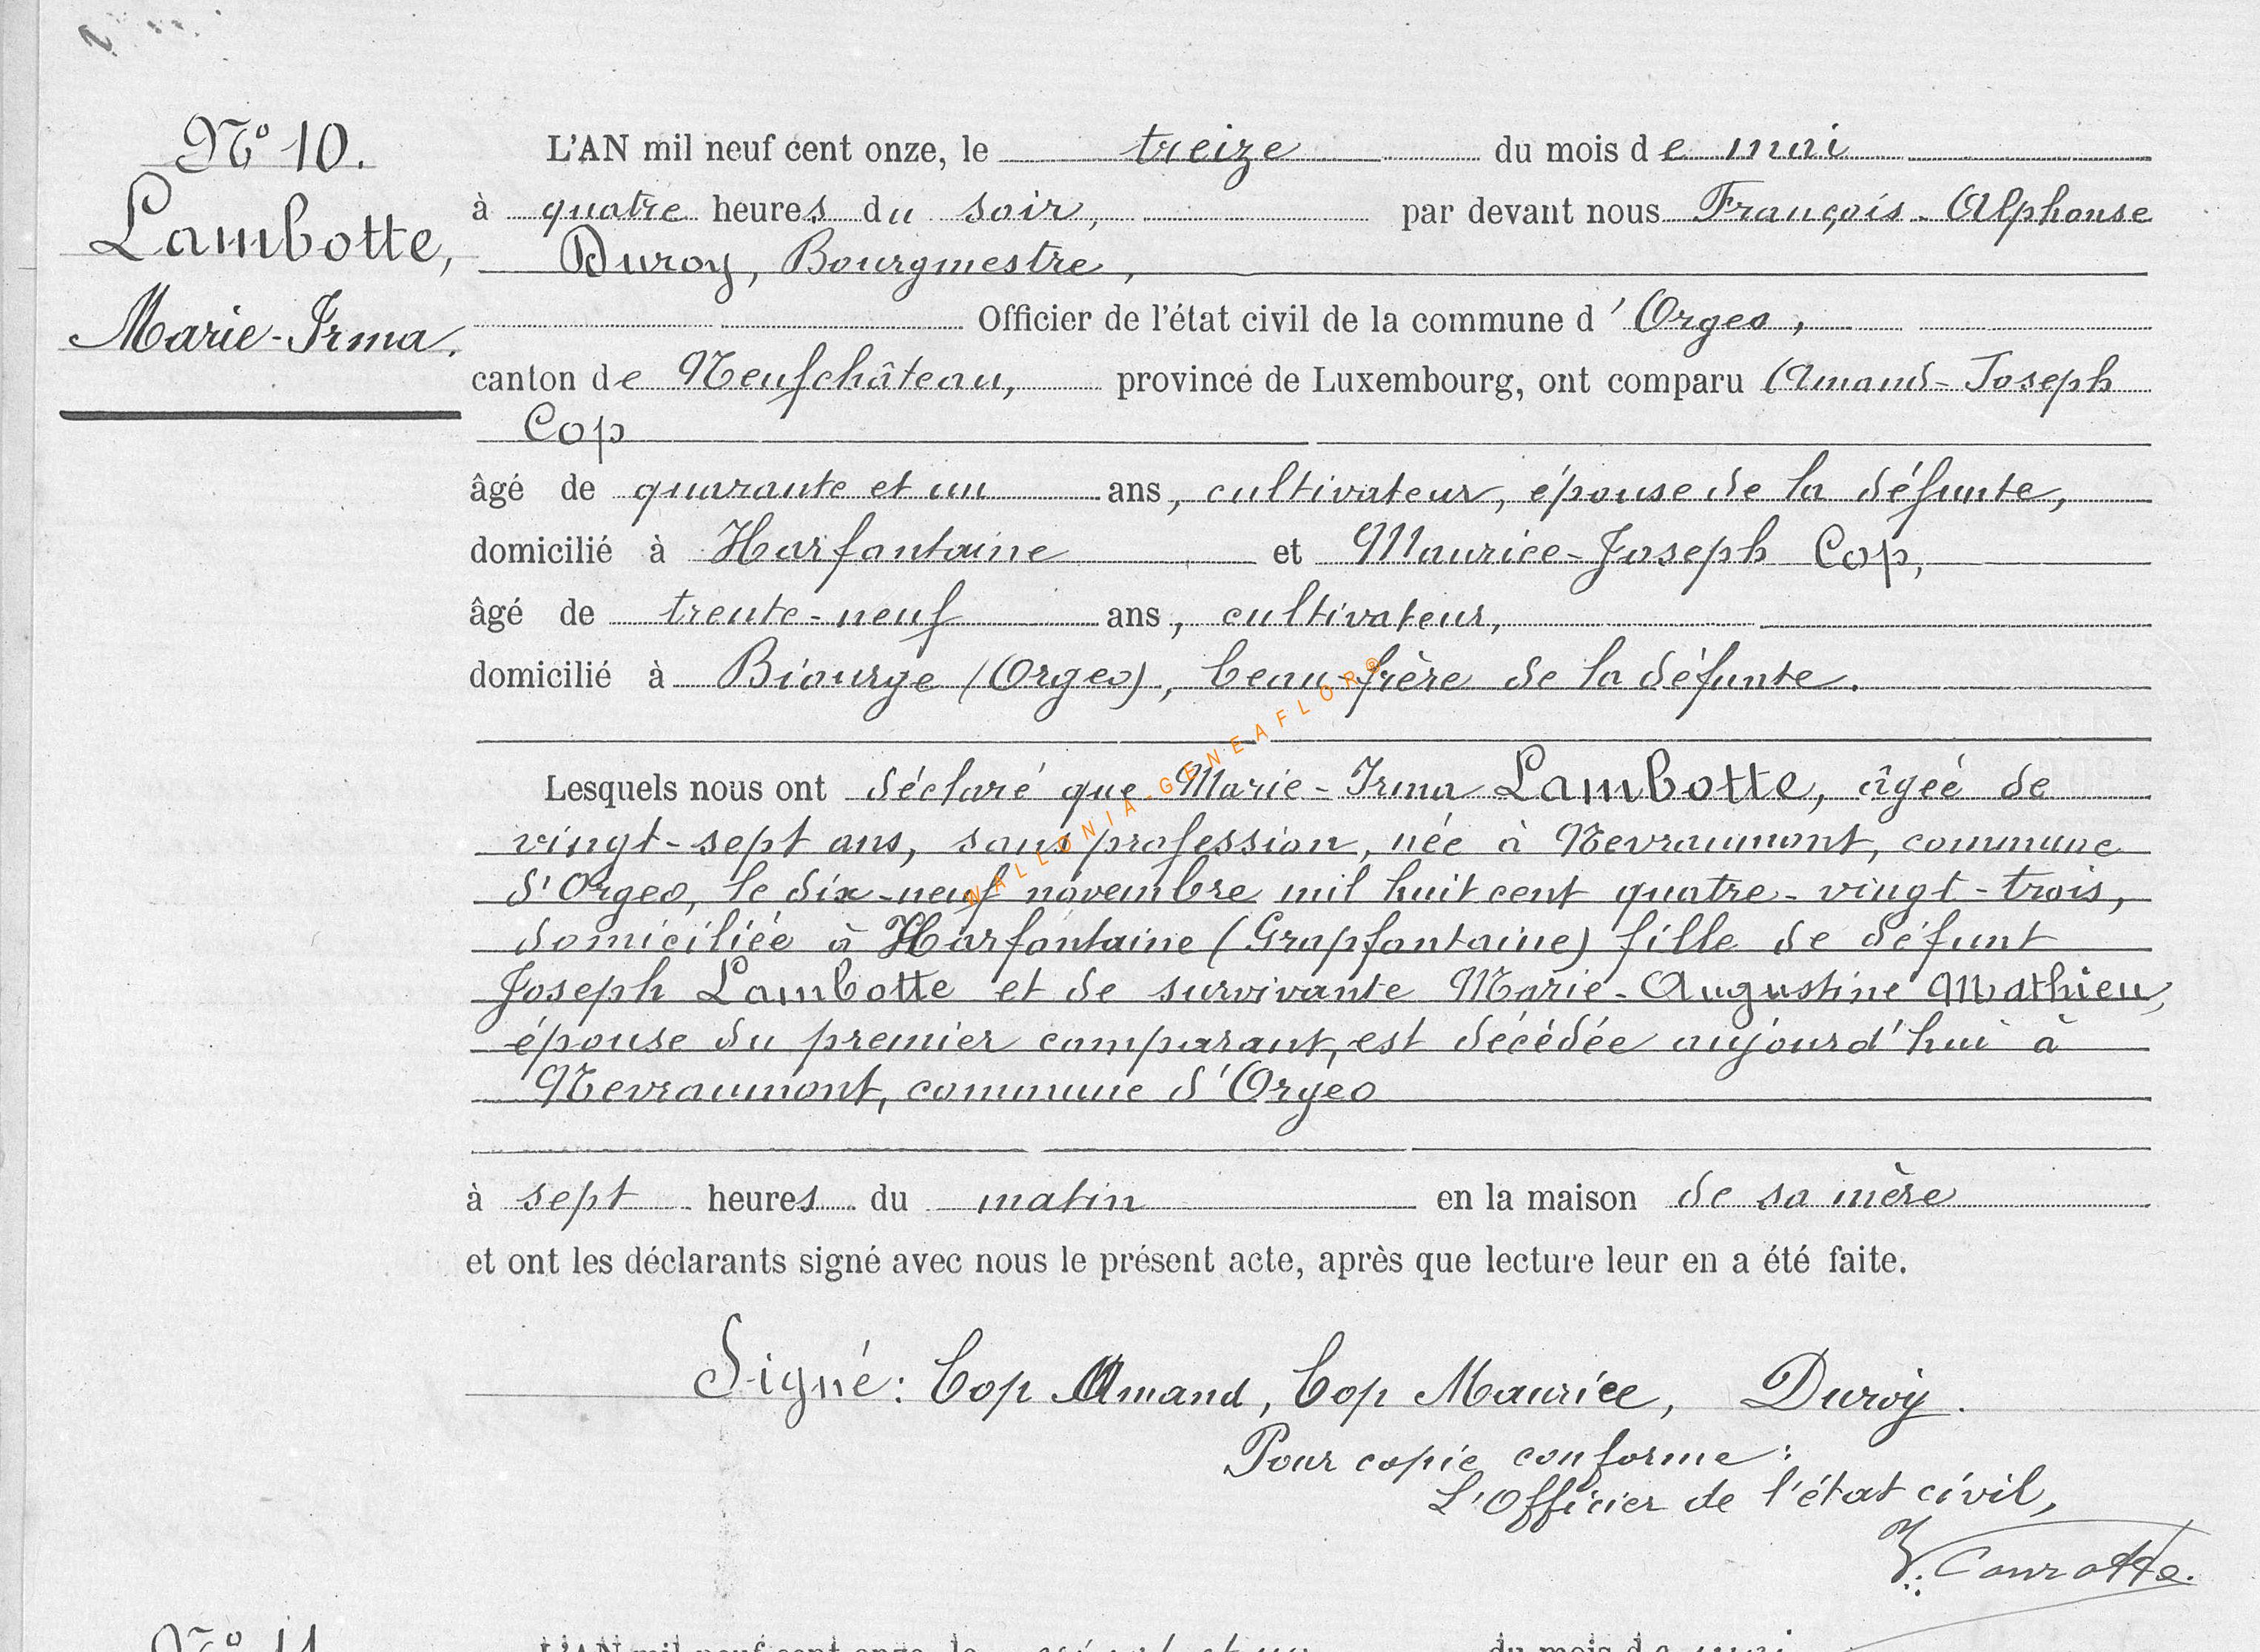 N° 10.
Lambotte,
Marie-Irma.
L'AN mil neuf cent onze, le treize du mois de mai
à quatre heures du soir, par devant nous François-Alphonse
Duroy, Bourgmestre,
Officier de l'état civil de la commune d'Orgeo,
canton de Neufchâteau, province de Luxembourg, ont comparu Amand-Joseph
Cop
âgé de quarante et un ans, cultivateur, épouse de la défunte,
domicilié à Harfontaine et Maurice-Joseph Cop,
âgé de trente-neuf ans, cultivateur,
domicilié à Biourge (Orgeo), beau-frère de la défunte.
Lesquels nous ont déclaré que Marie-Irma Lambotte, âgée de
vingt-sept ans, sans profession, née à Nevraumont, commune
d'Orgeo, le dix-neuf novembre mil huit cent quatre-vingt-trois,
domiciliée à Harfontaine (Grapfontaine) fille de défunt
Joseph Lambotte et de survivante Marie-Augustine Mathieu,
épouse du premier comparant, est décédée aujourd'hui à
Nevraumont, commune d'Orgeo
à sept heures du matin en la maison de sa mère
et ont les déclarants signé avec nous le présent acte, après que lecture leur en a été faite.
Signé: Cop Amand, Cop Maurice, Duroy.
Pour copie conforme:
L'Officier de l'état civil,
WALLONIA-GENEAFLOR®
N° 11
L'AN mil neuf cent onze, le vingt et un du mois de mai